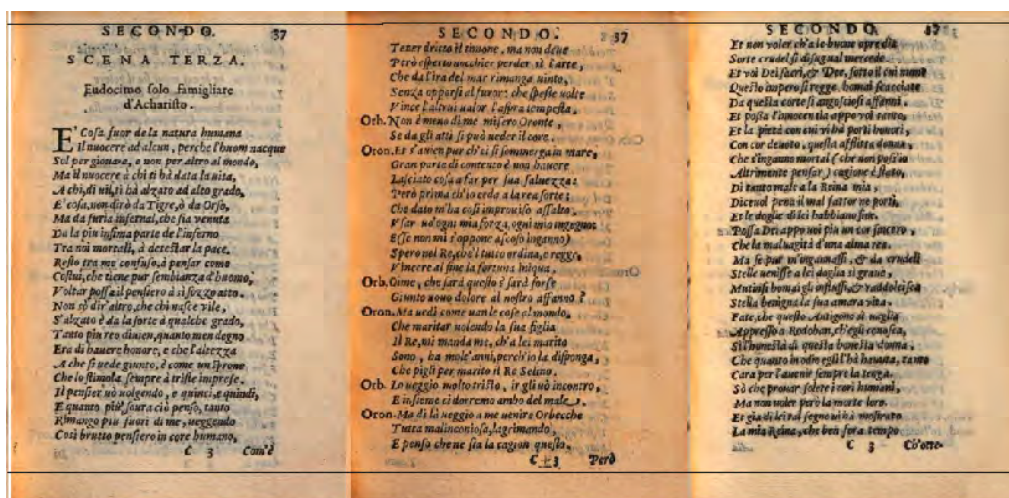 SECONDO. 37
SCENA TERZA.
Eudocimo solo famigliare
d'Acharisto.
E' Cosa fuor de la natura humana
Il nuocere ad alcun, perche l'huom nacque
Sol per giouare, e non per altro al mondo,
Ma il nuocere à chi ti hà data la uita,
A chi, di uil, ti hà alzato ad alto grado,
E' cosa, non dirò da Tigre, ò da Orso,
Ma da furia infernal, che sia uenuta
Da la piu infima parte de l'inferno
Tra noi mortali, à detestar la pace.
Resto tra me confuso, à pensar come
Costui, che tiene pur sembianza d'huomo,
Voltar possa il pensiero à sì sozzo atto.
Non sò dir'altro, che chi nasce vile,
S'alzato è da la sorte à qualche grado,
Tanto piu reo diuien, quanto men degno
Era di hauere honore, e che l'altezza
A che si uede giunto, è come un sprone
Che lo stimola sempre à triste imprese.
Il pensier uò uolgendo, e quinci, e quindi,
E quanto piu soura ciò penso, tanto
Rimango piu fuori di me, ueggendo
Così brutto pensiero in core humano,
C 3 Com'è
SECONDO. 37
Tener dritto il timone, ma non deue
Però esperto nocchier perder sì l'arte,
Che da l'ira del mar rimanga uinto,
Senza opporsi al furor: che spesse uolte
Vince l'altrui ualor l'aspra tempesta.
Orb. Non è meno di me misero Oronte,
Se da gli atti si può ueder il core.
Oron. Et s'auien pur ch'ei si sommerga in mare,
Gran parte di contento è non hauere
Lasciato cosa a far per sua saluezza:
Però prima ch'io ceda a la rea sorte:
Che dato m'ha così improuiso assalto,
Vsar uò ogni mia forza, ogni mio ingegno:
E (se non mi s'oppone ascoso inganno)
Spero nel Re, che'l tutto ordina, e regge,
Vincere al fine la fortuna iniqua,
Orb. Oime, che sarà questo è sarà forse
Giunto nouo dolore al nostro affanno?
Oron. Ma uedi come uan le cose al mondo,
Che maritar uolendo la sua figlia
Il Re, mi manda me, ch'a lei marito
Sono, ha molt'anni, perch'io la disponga,
Che pigli per marito il Re Selino.
Orb. Lo ueggio molto tristo, ir gli uò incontro,
E insieme ci dorremo ambo del male.
Oron. Ma di là ueggio a me uenire Orbecche
Tutta malinconiosa, lagrimando,
E penso che ne sia la cagion questo.
C 3 Però
SECONDO. 37
Et non voler ch'a le buone opre dia
Sorte crudel sì disugual mercede.
Et voi Dei sacri, & Dee, sotto il cui nume
Questo impero si regge, homai scacciate
Da questa corte sì angosciosi affanni.
Et possa l'innocentia appo voi tanto,
Et la pietà con cui vi hà porti honori,
Con cor deuoto, questa afflitta donna,
Che s'inganno mortal (che non poss'io
Altrimente pensar) cagione è stato,
Di tanto male a la Reina mia,
Diceuol pena il mal fattor ne porti,
Et le doglie di lei habbiano fin.
Possa Dei appo uoi piu un cor sincero,
Che la maluagità d'una alma rea.
Ma se pur m'ingannassi, & da crudeli
Stelle uenisse a lei doglia sì graue,
Mutinsi homai gli influssi, & raddolcisca
Stella benigna la sua amara vita.
Fate, che questo Antigono sì uaglia
Appresso a Rodoban, ch'egli conosca,
Sì l'honestà di questa honesta donna,
Che quanto in odio egli l'hà hauuta, tanto
Cara per l'auenir sempre la tenga.
Sò che prouar solete i cori humani,
Ma non uolete però la morte loro.
Et già di lei tal segno ui hà mostrato
La mia Reina, che ben fora tempo
C 3 Co'otte-